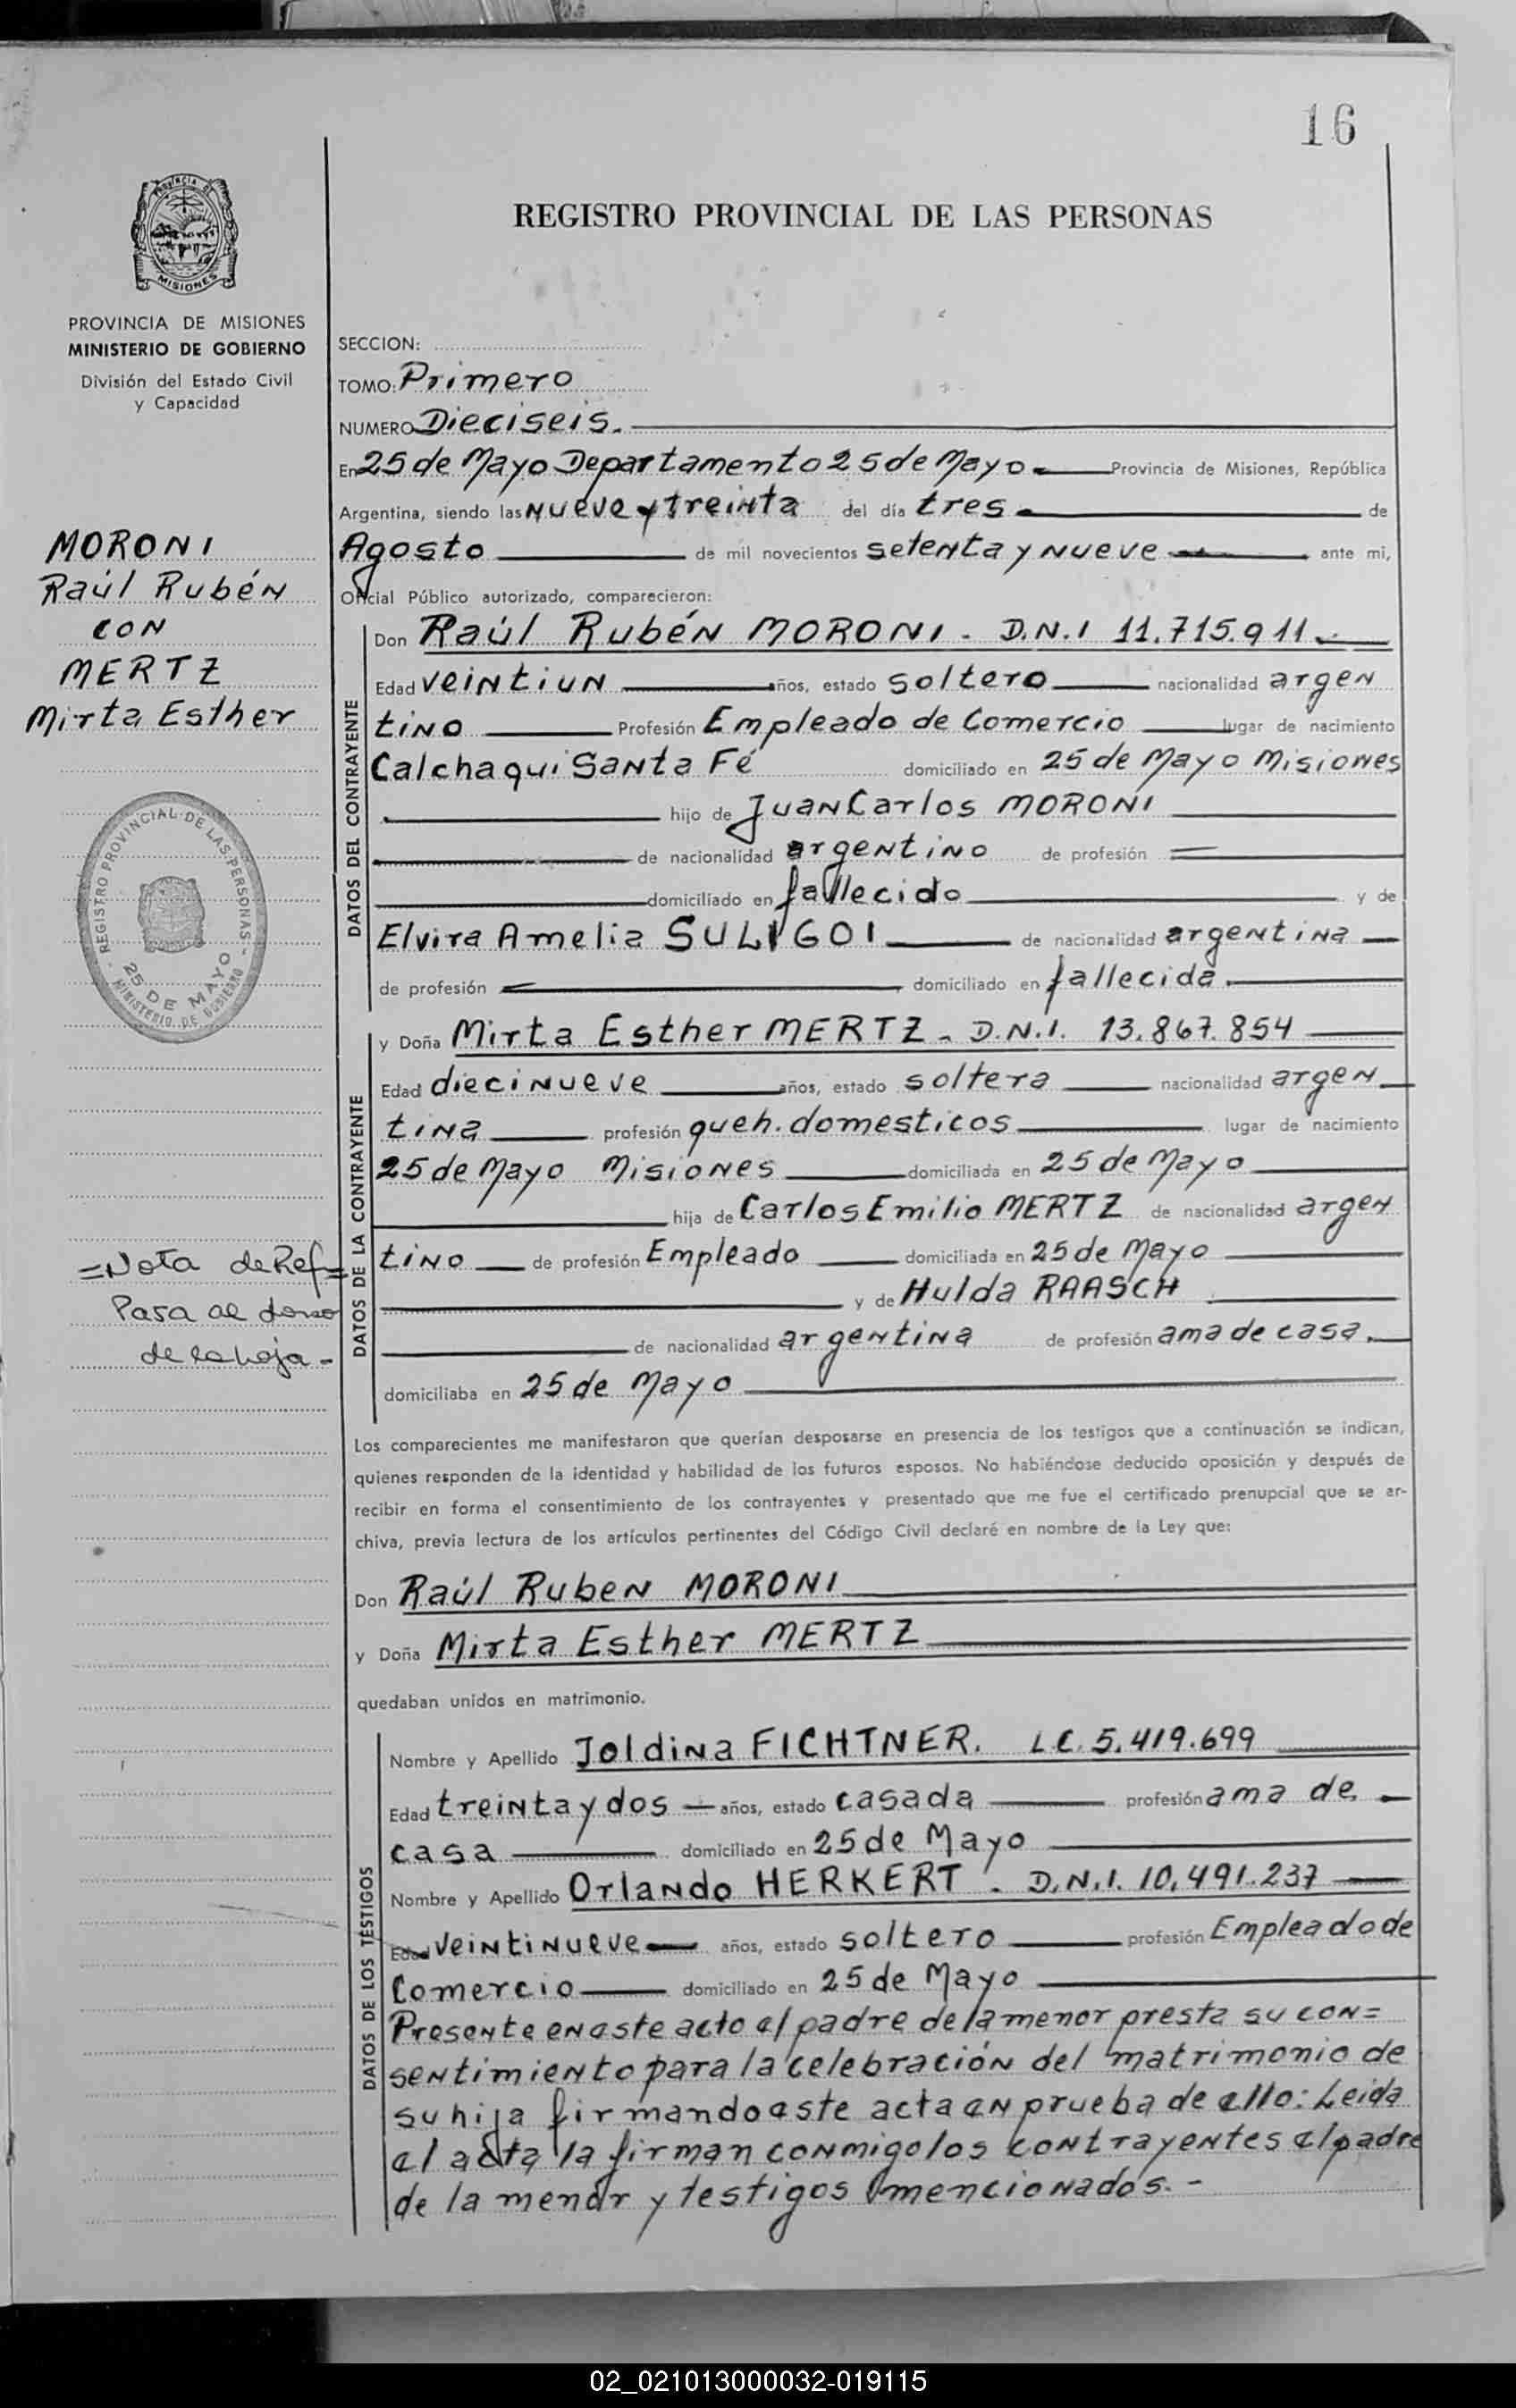 16
PROVINCIA DE
MISIONES
REGISTRO PROVINCIAL DE LAS PERSONAS
PROVINCIA DE MISIONES
MINISTERIO DE GOBIERNO
División del Estado Civil
y Capacidad
MORONI
Raúl Rubén
CON
MERTZ
Mirta Esther
REGISTRO PROVINCIAL DE LAS PERSONAS
25 DE MAYO
MINISTERIO DE GOBIERNO
=Nota de Ref=
Pasa al dorso
de la hoja-
SECCION:
TOMO: Primero
NUMERO Dieciseis.
En 25 de Mayo Departamento 25 de Mayo Provincia de Misiones, República
Argentina, siendo las nueve y treinta del día tres de
Agosto de mil novecientos setenta y nueve ante mi,
Oficial Público autorizado, comparecieron:
DATOS DEL CONTRAYENTE
Don Raúl Rubén MORONI - D.N.I 11.715.911
Edad veintiun años, estado soltero nacionalidad argen
tino Profesión Empleado de Comercio lugar de nacimiento
Calchaqui Santa Fé domiciliado en 25 de Mayo Misiones
hijo de Juan Carlos MORONI
de nacionalidad argentino de profesión
domiciliado en fallecido y de
Elvira Amelia SULIGOI de nacionalidad argentina
de profesión domiciliado en fallecida.
DATOS DE LA CONTRAYENTE
y Doña Mirta Esther MERTZ - D.N.I. 13.867.854
Edad diecinueve años, estado soltera nacionalidad argen
tina profesión queh. domesticos lugar de nacimiento
25 de Mayo Misiones domiciliada en 25 de Mayo
hija de Carlos Emilio MERTZ de nacionalidad argen
tino de profesión Empleado domiciliada en 25 de Mayo
y de Hulda RAASCH
de nacionalidad argentina de profesión ama de casa.
domiciliaba en 25 de Mayo
Los comparecientes me manifestaron que querían desposarse en presencia de los testigos que a continuación se indican,
quienes responden de la identidad y habilidad de los futuros esposos. No habiéndose deducido oposición y después de
recibir en forma el consentimiento de los contrayentes y presentado que me fue el certificado prenupcial que se ar-
chiva, previa lectura de los artículos pertinentes del Código Civil declaré en nombre de la Ley que:
Don Raúl Ruben MORONI
y Doña Mirta Esther MERTZ
quedaban unidos en matrimonio.
DATOS DE LOS TESTIGOS
Nombre y Apellido Joldina FICHTNER. L.C. 5.419.699
Edad treinta y dos años, estado casada profesión ama de
casa domiciliado en 25 de Mayo
Nombre y Apellido Orlando HERKERT. D.N.I. 10.491.237
Edad veintinueve años, estado soltero profesión Empleado de
Comercio domiciliado en 25 de Mayo
Presente en este acto el padre de la menor presta su con=
sentimiento para la celebración del matrimonio de
su hija firmando este acta en prueba de ello: Leida
el acta la firman conmigo los contrayentes el padre
de la menor y testigos mencionados.-
02_021013000032-019115